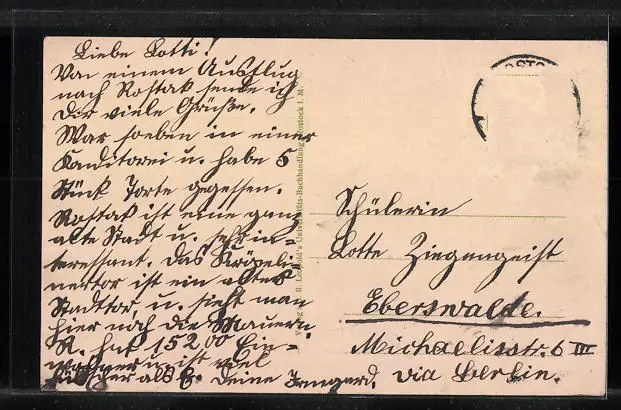 Liebe Lotti!
Von einem Ausflug
nach Rostok sende ich
Dir viele Grüße.
War soeben in einer
Konditorei u. habe 5
Stück Torte gegessen.
Rostok ist eine ganz
alte Stadt u. sehr in=
teressant. Das Kröpeli=
nertor ist ein altes
Stadttor, u. sieht man
hier noch die Mauern.
R. hat 15200 Ein=
wohner u. ist viel
hübscher als E. Deine Irmgard.
Universitäts-Buchhandlung, Rostock i. M.
OSTO
Schülerin
Lotte Ziegengeist
Eberswalde.
Michaelisstr. 6 III
via Berlin.